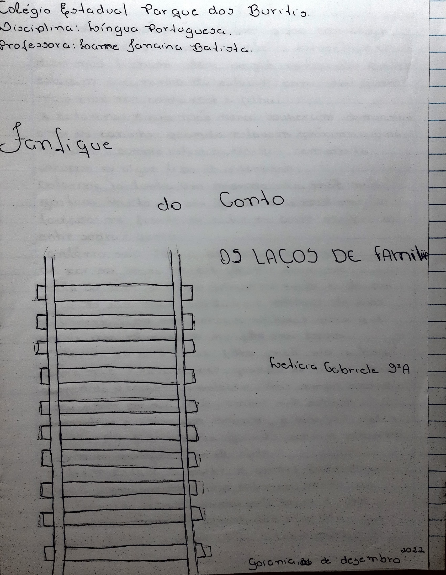 Colégio Estadual Parque dos Buritis.
Disciplina: Língua Portuguesa.
Professora: Janaina Batista.
Fanfique
do Conto
OS LAÇOS DE Família
Letícia Gabriela 9ºA
Goiania de dezembro 2022